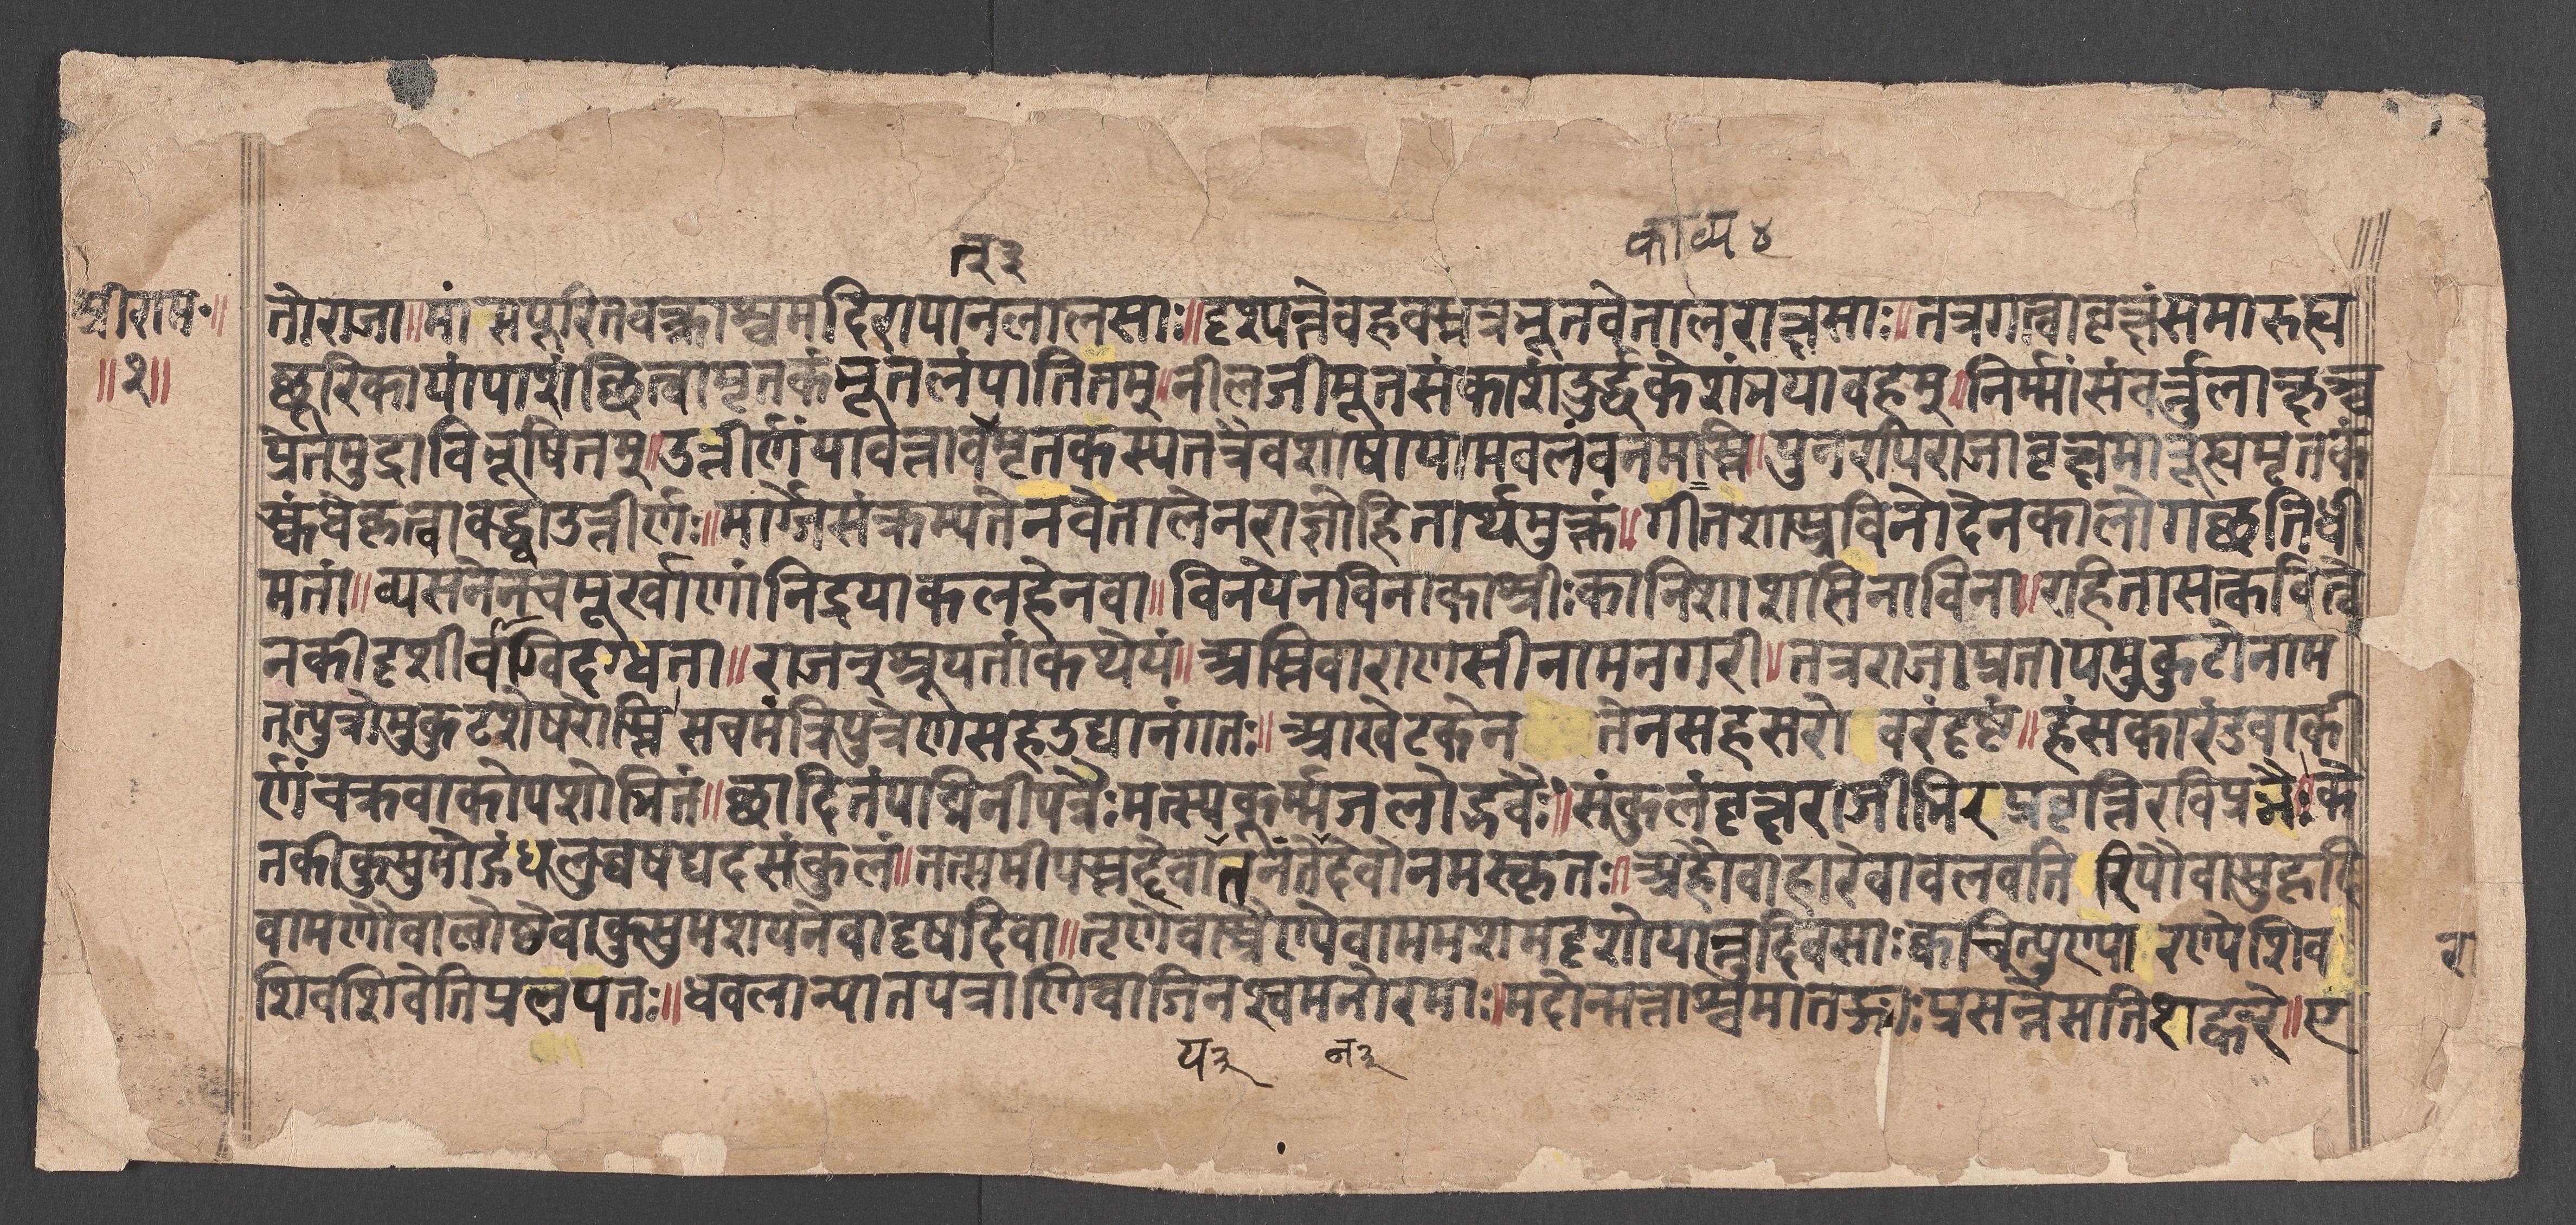 त३
काव्य ४
श्रीराम॰॥
॥१॥
तोराजा॥मांसपूरितवक्त्राश्चमदिरापानलालसाः॥दृश्यन्तेवहवस्तत्रभूतवेतालराक्षसाः॥तत्रगत्वावृक्षंसमारुह्य
छुरिकायांपाशंछित्वामृतकंभूतलंपातितम्॥नीलजीमूतसंकाशंउर्द्धकेशंभयावहम्॥निर्म्मांसंवर्तुलाक्षंच
प्रेतमुद्राविभूषितम्॥उत्तीर्णंयावत्तावन्मृतकस्यतत्रैवशाषायामवलंवनमास्ति॥पुनरपिराजावृक्षमारूह्यमृतकं
स्कंधेकृत्वावद्ध्वाउत्तीर्णः॥मार्ग्गेसंक्रम्यतेनवेतालेनराज्ञोहितार्थमुक्तं॥गीतशास्त्रविनोदेनकालोगछतिधी
मतां॥व्यसनेनचमूर्खाणांनिद्रयाकलहेनवा॥विनयेनविनाकाश्रीःकानिशाशसिनाविना॥रहितासत्कवित्वे
नकीदृशीर्वाग्विदग्धता॥राजन्श्रूयतांकथेयं॥अस्तिवाराणसीनामनगरी॥तत्रराजाप्रतापमुकुटोनाम
तत्पुत्रोमुकुटशेषरोस्ति॥सचमंत्रिपुत्रेणसहउद्यानंगतः॥आखेटकेन तेनसहसरो वरंदृष्टं॥हंसकारंडवाकी
र्णंचक्रवाकोपशोभितं॥छादितंपद्मिनीपत्रैःमत्स्यकूर्म्मजलोद्भवैः॥संकुलंवृक्षराजीभिरप्रवृत्तिरविप्रभैः॥के
तकीकुसुमोद्गंधलुव्धषट्पदसंकुलं॥तत्समीपस्तद्देवातनंतेदेवोनमस्कृतः॥अहौवाहारेवावलवति रिपौवासुहृदि
वामणौवालोष्ठेवाकुसुमशयनेवादृषदिवा॥तृणेवास्त्रैणेवाममशमदृशोयान्तुदिवसाः॥क्वचित्पुण्या रण्येशिव
शिवशिवेतिप्रलपतः॥धवलान्यातपत्राणिवाजिनश्चमनोरमाः॥मदोन्मत्ताश्चमातङ्गाःप्रसन्नेसतिशङ्करे॥ए
रा
य३
न३